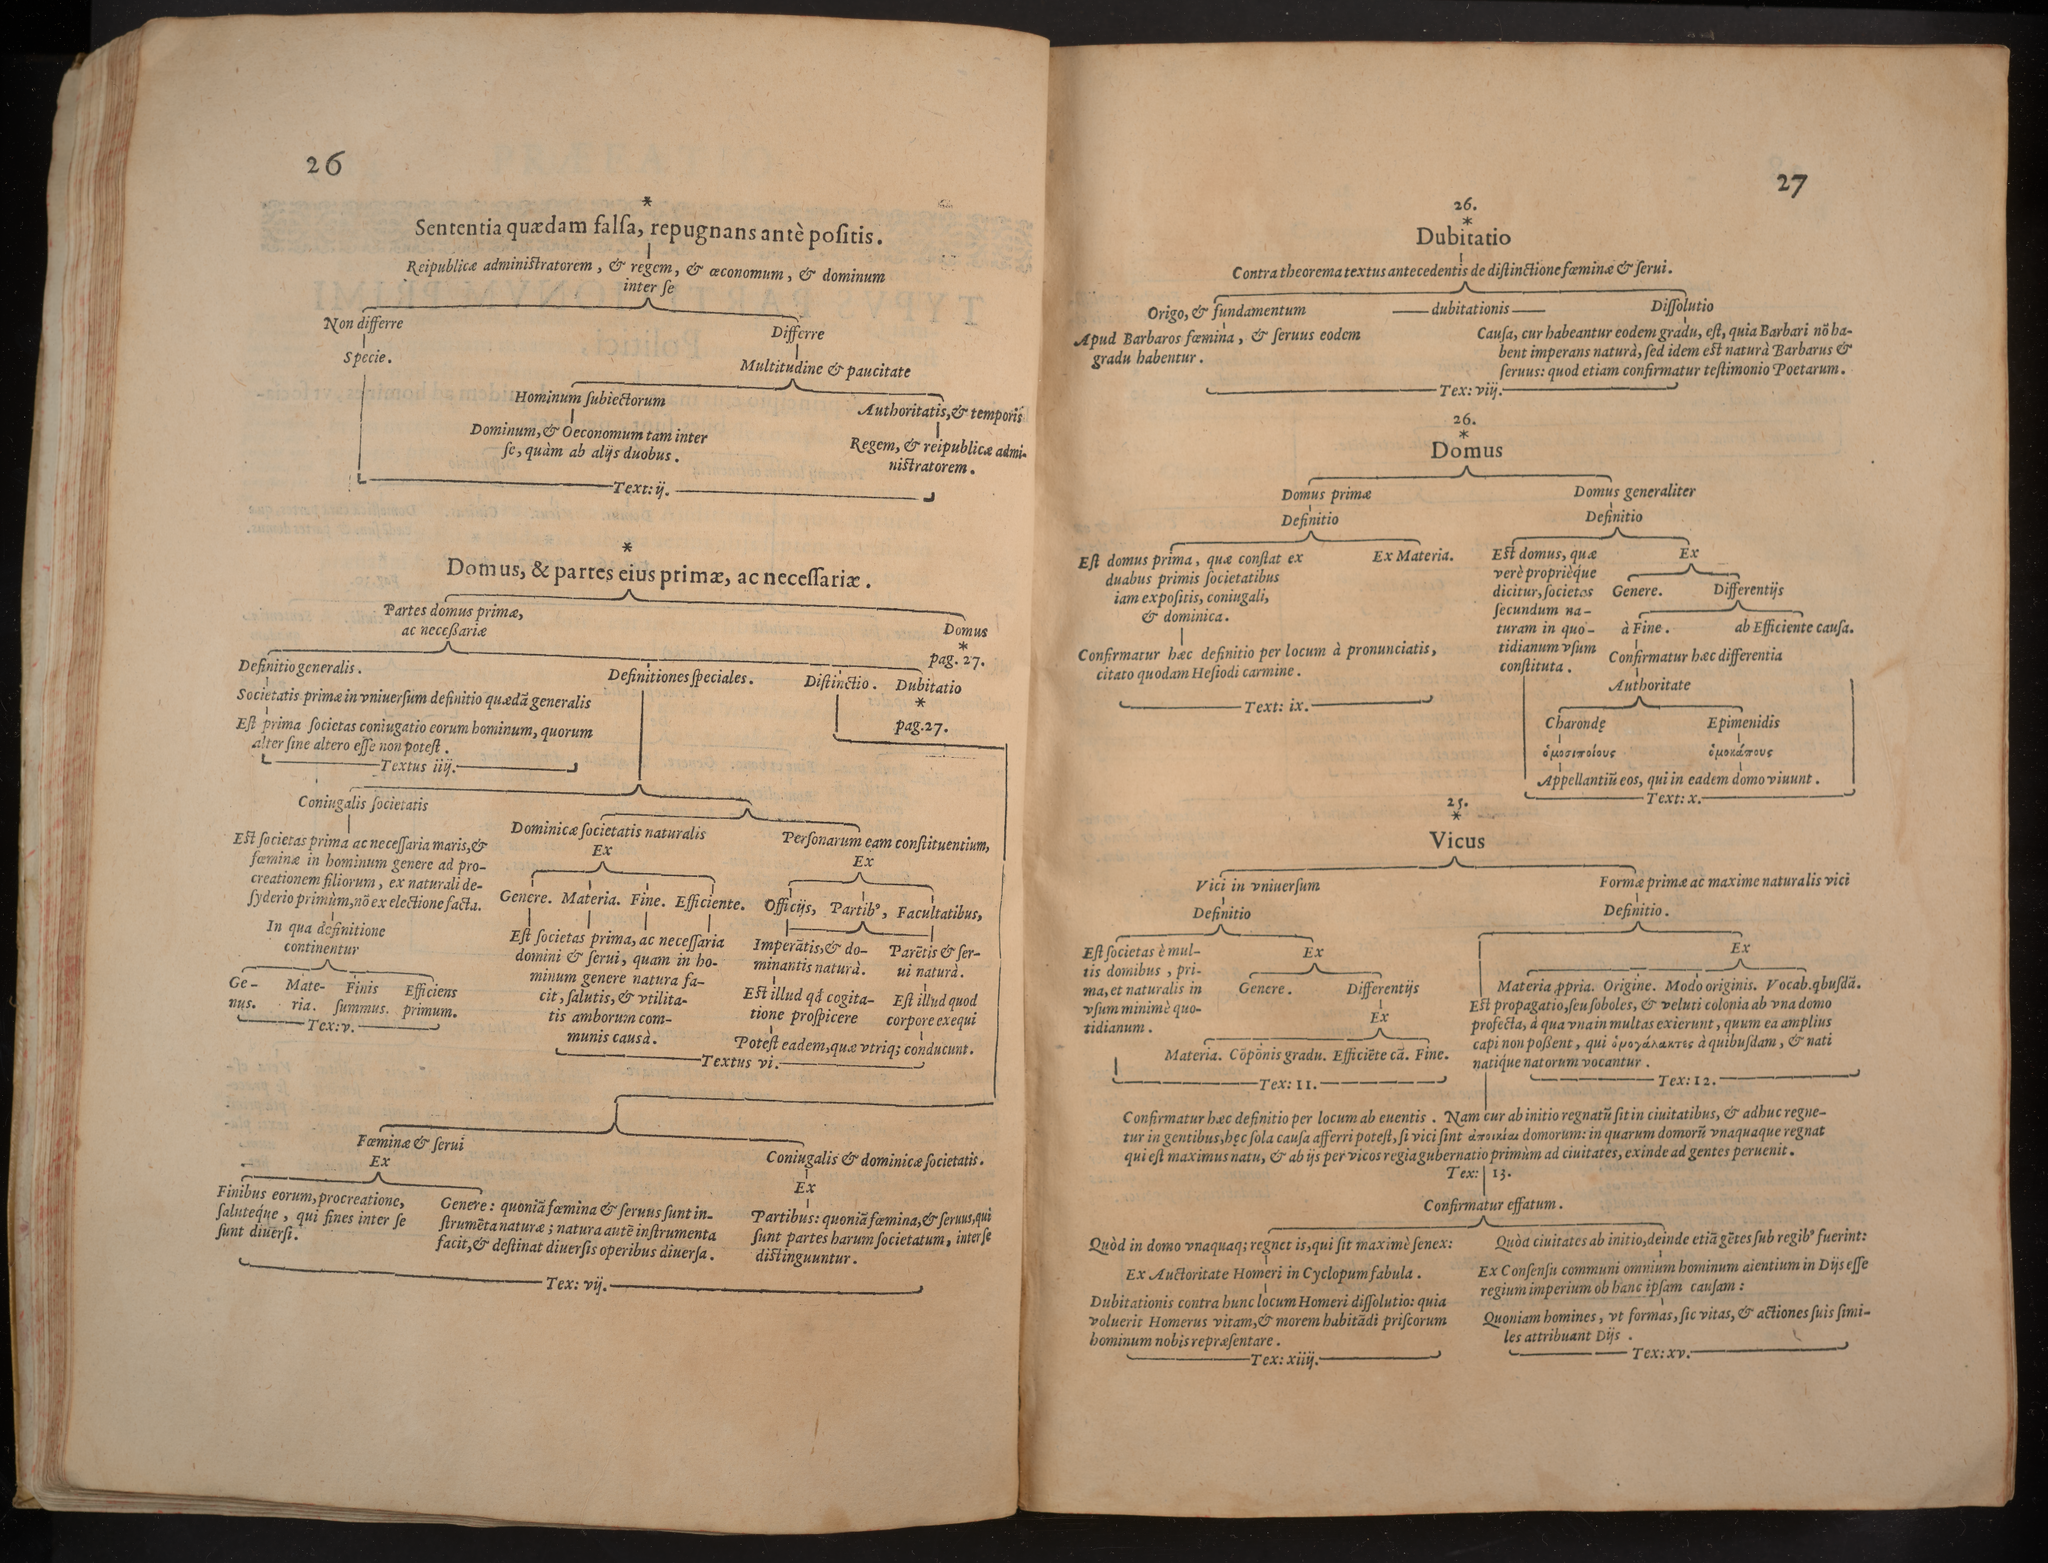 26
*
Sententia quædam falſa, repugnans antè poſitis.
Reipublicæ adminiſtratorem, & regem, & œconomum, & dominum
inter ſe
Non differre
Differre
Specie.
Multitudine & paucitate
Hominum ſubiectorum
Authoritatis, & temporis
Dominum, & Oeconomum tam inter
ſe, quàm ab alijs duobus.
Regem, & reipublicæ admi-
niſtratorem.
Text: ij.
*
Domus, & partes eius primæ, ac neceſſariæ.
Partes domus primæ,
ac neceßariæ
Domus
*
pag. 27.
Definitio generalis.
Definitiones ſpeciales.
Diſtinctio.
Dubitatio
*
pag. 27.
Societatis primæ in vniuerſum definitio quædā generalis
Eſt prima ſocietas coniugatio eorum hominum, quorum
alter ſine altero eſſe non poteſt.
Textus iiij.
Coniugalis ſocietatis
Dominicæ ſocietatis naturalis
Perſonarum eam conſtituentium,
Eſt ſocietas prima ac neceſſaria maris, &
fœminæ in hominum genere ad pro-
creationem filiorum, ex naturali de-
ſyderio primùm, nō ex electione facta.
In qua definitione
continentur
Ge-
nus.
Mate-
ria.
Finis
ſummus.
Efficiens
primum.
Tex: v.
Ex
Genere. Materia. Fine. Efficiente.
Eſt ſocietas prima, ac neceſſaria
domini & ſerui, quam in ho-
minum genere natura fa-
cit, ſalutis, & vtilita-
tis amborum com-
munis causà.
Ex
Officijs, Partibꝰ, Facultatibus,
Imperātis, & do-
minantis naturà.
Parētis & ſer-
ui naturà.
Eſt illud qđ cogita-
tione proſpicere
Eſt illud quod
corpore exequi
Poteſt eadem, quæ vtriq; conducunt.
Textus vi.
Fœminæ & ſerui
Ex
Coniugalis & dominicæ ſocietatis.
Ex
Finibus eorum, procreatione,
ſaluteq́ue, qui fines inter ſe
ſunt diuerſi.
Genere: quoniā fœmina & ſeruus ſunt in-
ſtrumēta naturæ; natura autē inſtrumenta
facit, & deſtinat diuerſis operibus diuerſa.
Partibus: quoniā fœmina, & ſeruus, qui
ſunt partes harum ſocietatum, inter ſe
diſtinguuntur.
Tex: vij.
27
26.
*
Dubitatio
Contra theorema textus antecedentis de diſtinctione fœminæ & ſerui.
Origo, & fundamentum
dubitationis
Diſſolutio
Apud Barbaros fœmina, & ſeruus eodem
gradu habentur.
Cauſa, cur habeantur eodem gradu, eſt, quia Barbari nō ha-
bent imperans naturà, ſed idem eſt naturà Barbarus &
ſeruus: quod etiam confirmatur teſtimonio Poetarum.
Tex: viij.
26.
*
Domus
Domus primæ
Definitio
Domus generaliter
Definitio
Eſt domus prima, quæ conſtat ex
duabus primis ſocietatibus
iam expoſitis, coniugali,
& dominica.
Ex Materia.
Confirmatur hæc definitio per locum à pronunciatis,
citato quodam Heſiodi carmine.
Text: ix.
Eſt domus, quæ
verè proprièq́ue
dicitur, ſocietas
ſecundum na-
turam in quo-
tidianum vſum
conſtituta.
Ex
Genere.
Differentijs
à Fine.
ab Efficiente cauſa.
Confirmatur hæc differentia
Authoritate
Charondę
Epimenidis
ὁμοσιποίους
ὁμοκάπους
Appellantiū eos, qui in eadem domo viuunt.
Text: x.
25.
*
Vicus
Vici in vniuerſum
Definitio
Formæ primæ ac maxime naturalis vici
Definitio.
Eſt ſocietas è mul-
tis domibus, pri-
ma, et naturalis in
vſum minimè quo-
tidianum.
Ex
Genere.
Differentijs
Ex
Materia. Cōpōnis gradu. Efficiēte cā. Fine.
Tex: 11.
Ex
Materia ꝓpria. Origine. Modo originis. Vocab. qbuſdā.
Eſt propagatio, ſeu ſoboles, & veluti colonia ab vna domo
profecta, à qua vna in multas exierunt, quum ea amplius
capi non poßent, qui ὁμογάλακτες à quibuſdam, & nati
natiq́ue natorum vocantur.
Tex: 12.
Confirmatur hæc definitio per locum ab euentis. Nam cur ab initio regnatū ſit in ciuitatibus, & adhuc regne-
tur in gentibus, hęc ſola cauſa afferri poteſt, ſi vici ſint ἀποικίαι domorum: in quarum domorū vnaquaque regnat
qui eſt maximus natu, & ab ijs per vicos regia gubernatio primùm ad ciuitates, exinde ad gentes peruenit.
Tex: 13.
Confirmatur effatum.
Quòd in domo vnaquaq; regnet is, qui ſit maximè ſenex:
Ex Auctoritate Homeri in Cyclopum fabula.
Dubitationis contra hunc locum Homeri diſſolutio: quia
voluerit Homerus vitam, & morem habitādi priſcorum
hominum nobis repræſentare.
Tex: xiiij.
Quòd ciuitates ab initio, deinde etiā gētes ſub regibꝰ fuerint:
Ex Conſenſu communi omnium hominum aientium in Dijs eſſe
regium imperium ob hanc ipſam cauſam:
Quoniam homines, vt formas, ſic vitas, & actiones ſuis ſimi-
les attribuant Dijs.
Tex: xv.